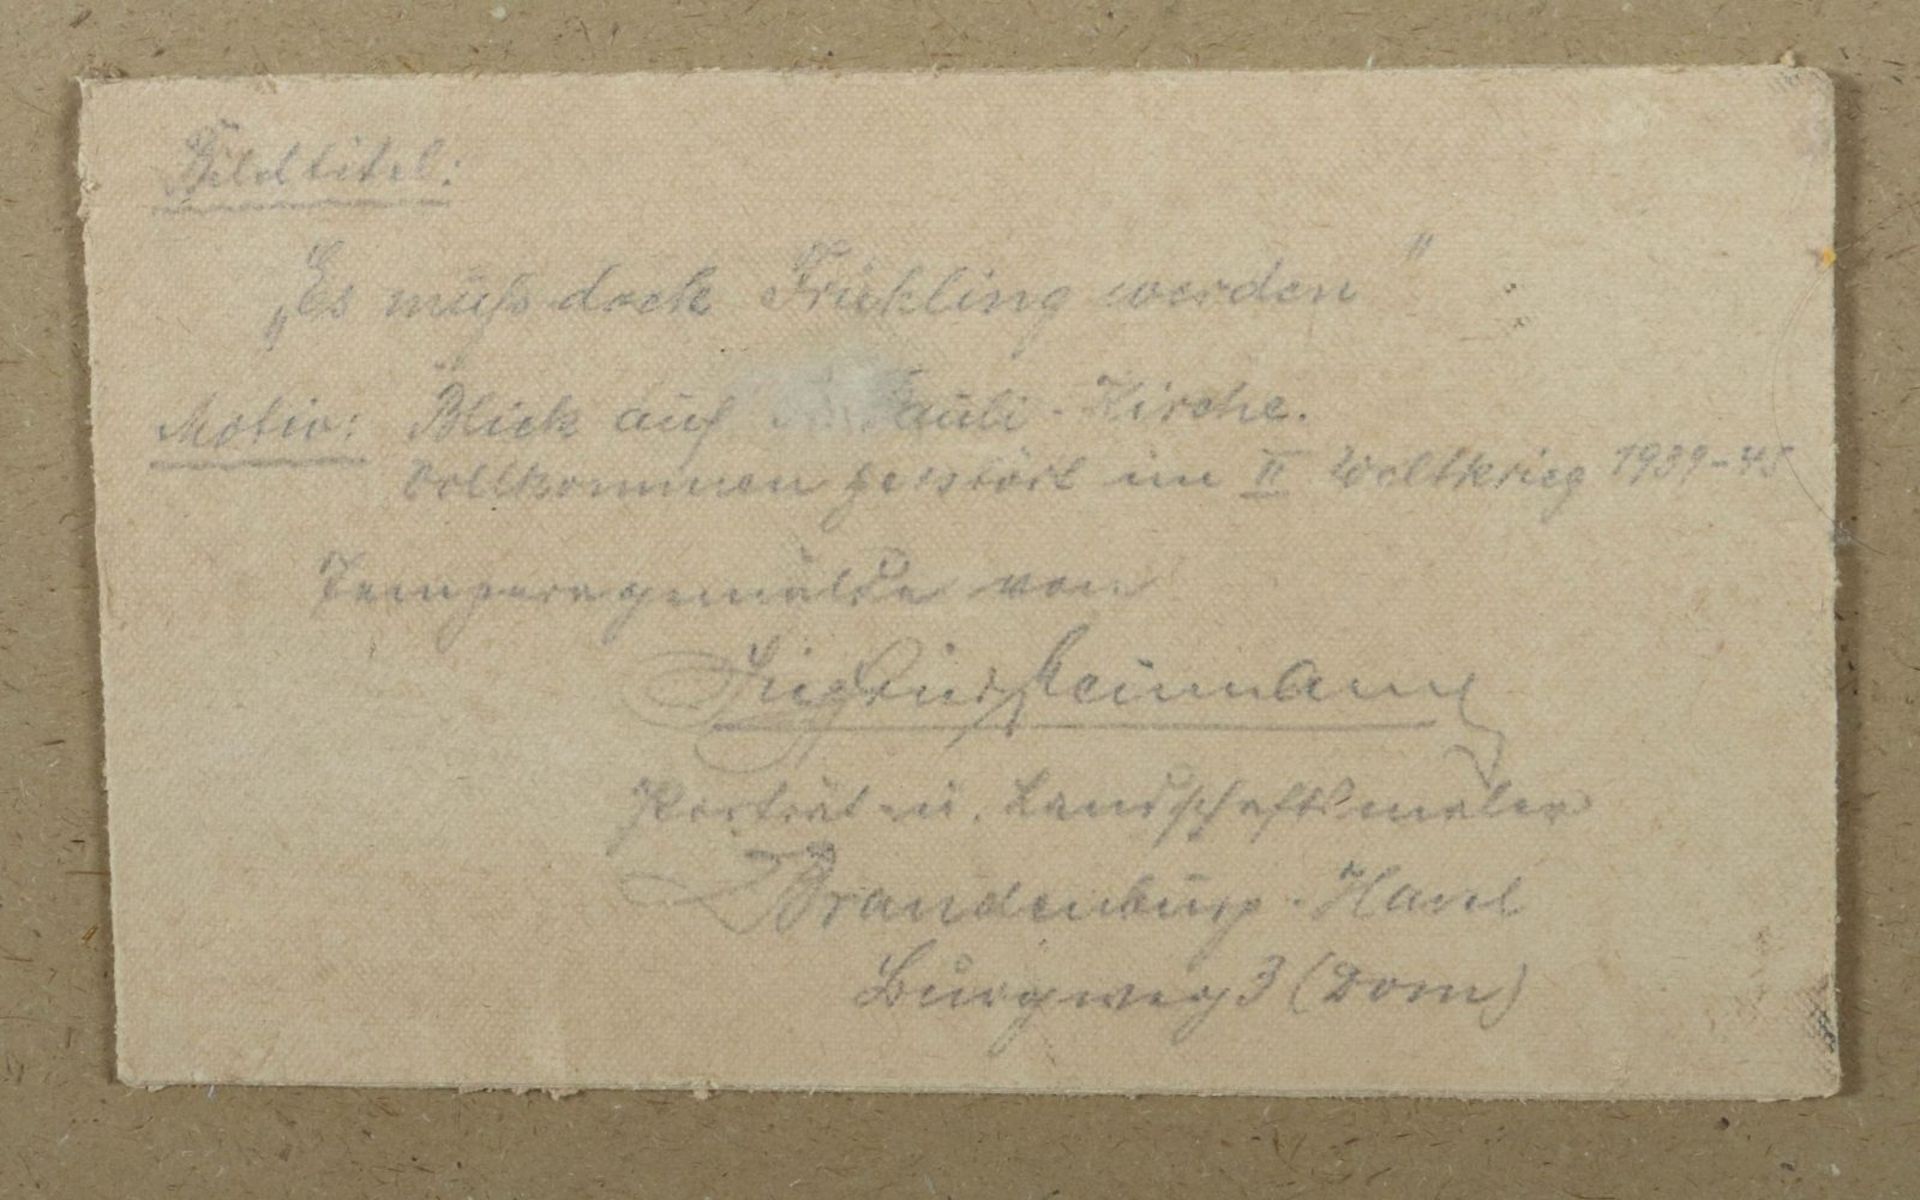 Bildtitel:
„Es muß doch Frühling werden"
Motiv: Blick auf St. Pauli-Kirche.
Vollkommen zerstört im II Weltkrieg 1939-45
Temperagemälde von
Porträt u. Landschaftsmaler
Brandenburg-Havel
Burgweg 3 (Dom)